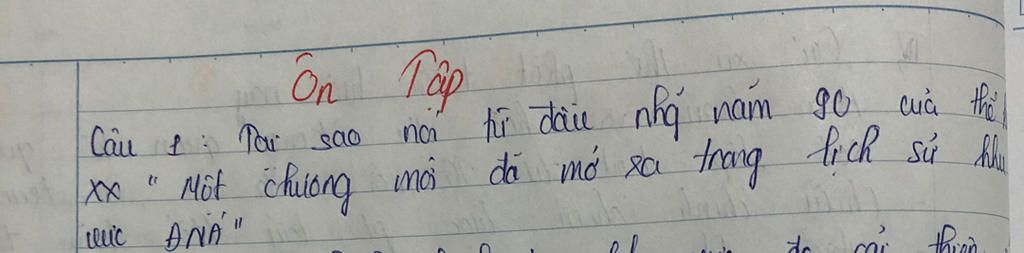 Ôn Tập
Câu 1: Tại sao nói từ đầu nhg năm 90 của thế
XX " Một chương mới đã mở ra trong lịch sử khu
vực ĐNÁ"